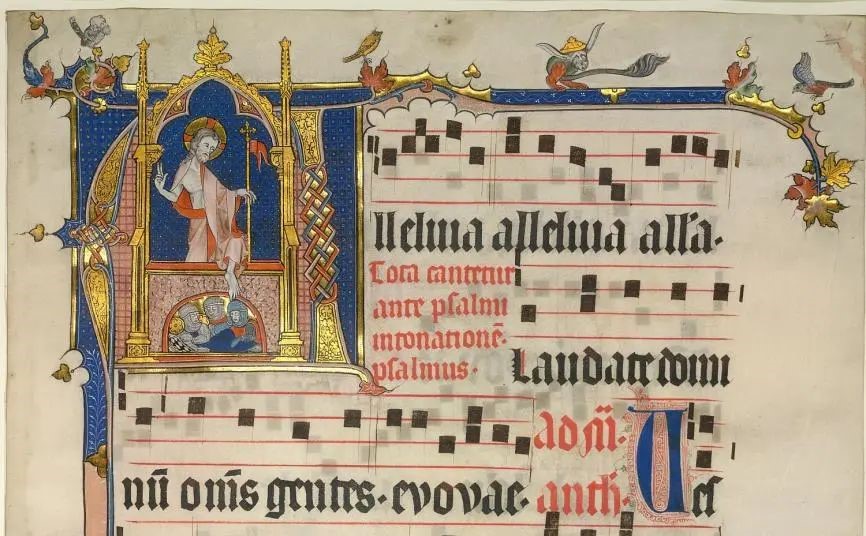 Alleluia alleluia all'a·
Tota cantetur
ante psalmi
intonationē·
psalmus· Laudate domi
ad m̄·
nū om̄s gentes· evovae· anth· Ues